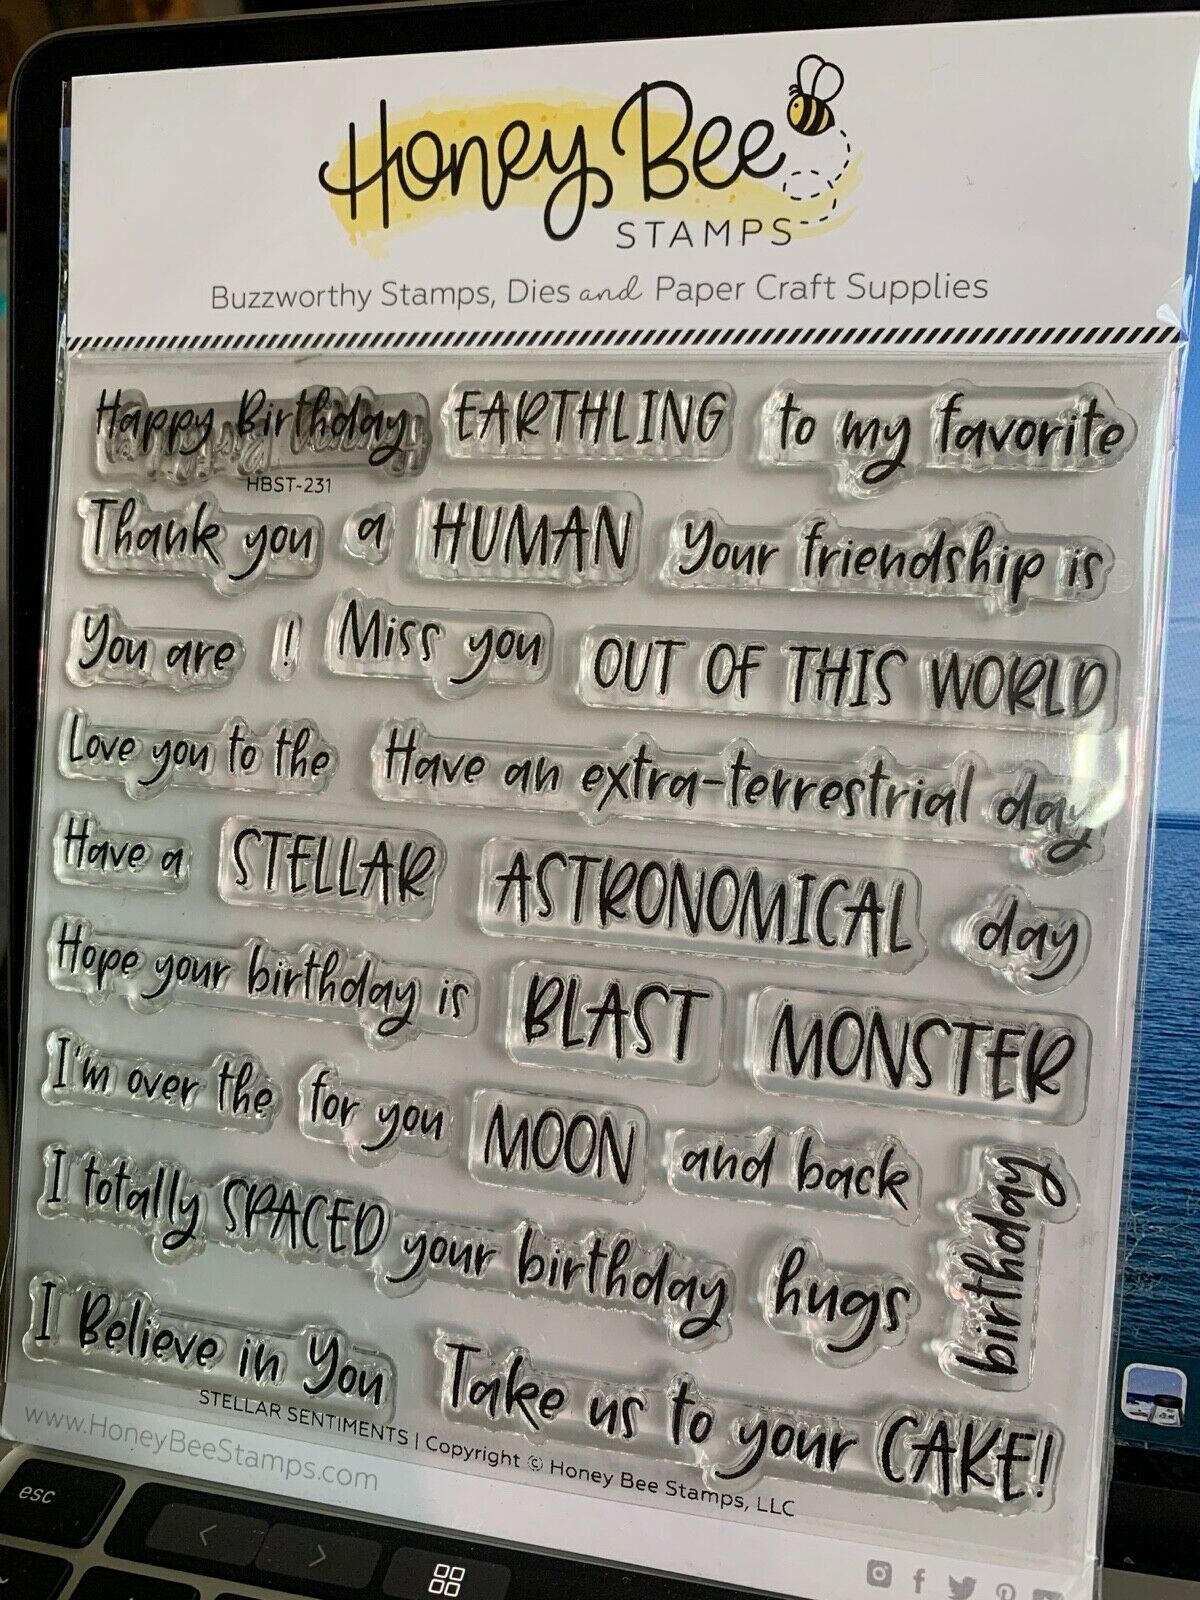 Honey Bee
STAMPS
Buzzworthy Stamps, Dies and Paper Craft Supplies
Happy Birthday EARTHLING to my favorite
HBST-231
Thank you a HUMAN Your friendship is
You are ! Miss you OUT OF THIS WORLD
Love you to the Have an extra-terrestrial day
Have a STELLAR ASTRONOMICAL day
Hope your birthday is BLAST MONSTER
I'm over the for you MOON and back
birthday
I totally SPACED your birthday hugs
I Believe in You Take us to your CAKE!
STELLAR SENTIMENTS | Copyright © Honey Bee Stamps, LLC
www.HoneyBeeStamps.com
esc